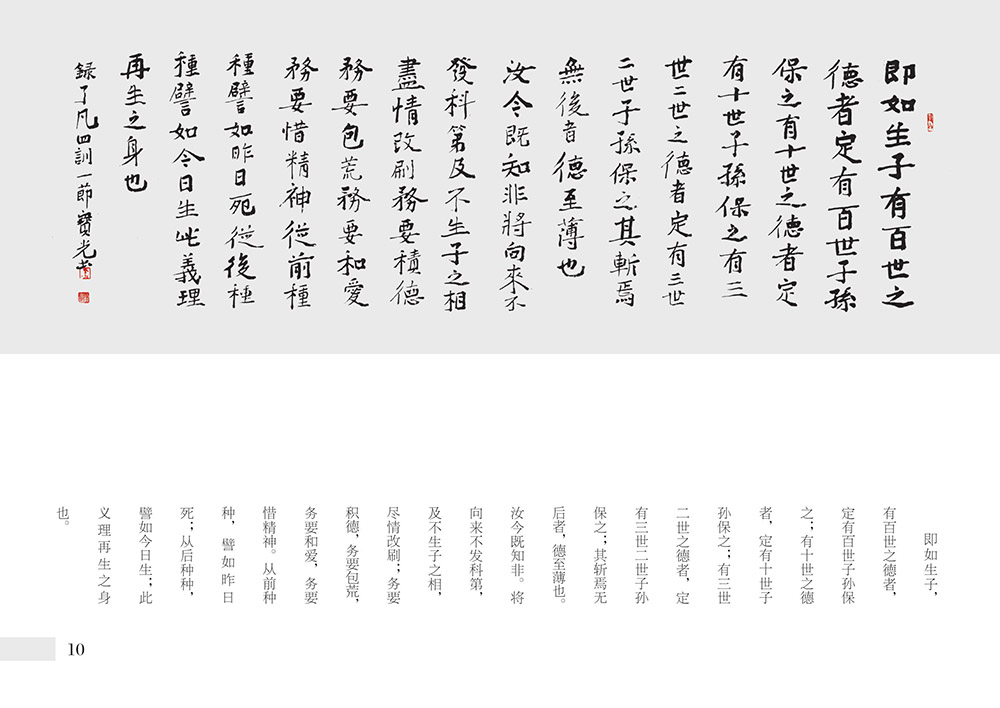 即如生子有百世之
德者定有百世子孫
保之有十世之德者定
有十世子孫保之有三
世二世之德者定有三世
二世子孫保之其斬焉
無後者德至薄也
汝今既知非將向來不
發科第及不生子之相
盡情改刷務要積德
務要包荒務要和愛
務要惜精神從前種
種譬如昨日死從後種
種譬如今日生此義理
再生之身也
録了凡四訓一節寶光書
即如生子，
有百世之德者，
定有百世子孙保
之；有十世之德
者，定有十世子
孙保之；有三世
二世之德者，定
有三世二世子孙
保之；其斩焉无
后者，德至薄也。
汝今既知非。将
向来不发科第，
及不生子之相，
尽情改刷；务要
积德，务要包荒，
务要和爱，务要
惜精神。从前种
种，譬如昨日
死；从后种种，
譬如今日生；此
义理再生之身
也。
10